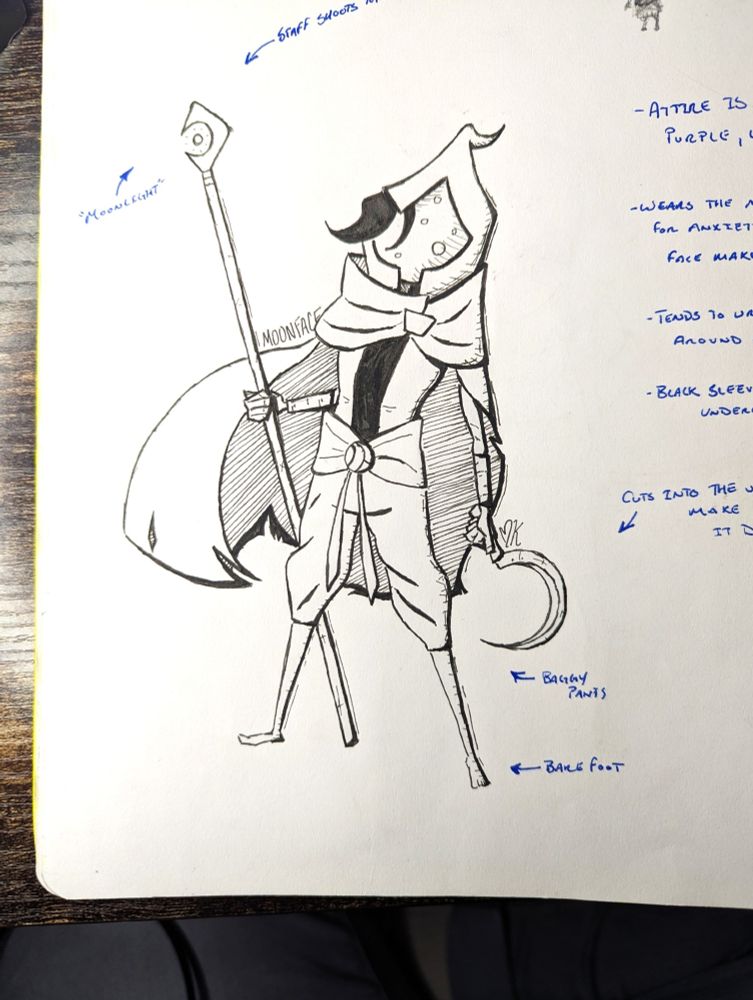 STAFF SHOOTS
"MOONLIGHT"
MOONFACE
- ATTIRE IS
PURPLE,
- WEARS THE
FOR
FACE MAKE
- TENDS TO
AROUND
- BLACK
CUTS INTO THE
MAKE
IT
BAGGY
PANTS
BAREFOOT